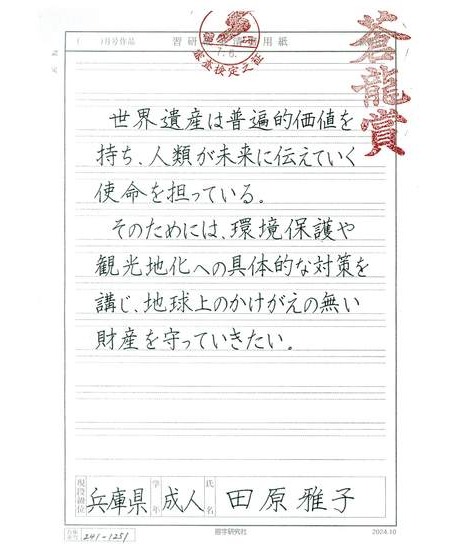 ( )月号作品
習研
用紙
7.6.
審査検定之社
蒼龍賞
世界遺産は普遍的価値を
持ち、人類が未来に伝えていく
使命を担っている。
そのためには、環境保護や
観光地化への具体的な対策を
講じ、地球上のかけがえの無い
財産を守っていきたい。
現段級位 兵庫県 学年 成人 氏名 田原雅子
241-1251
習字研究社
2024.10